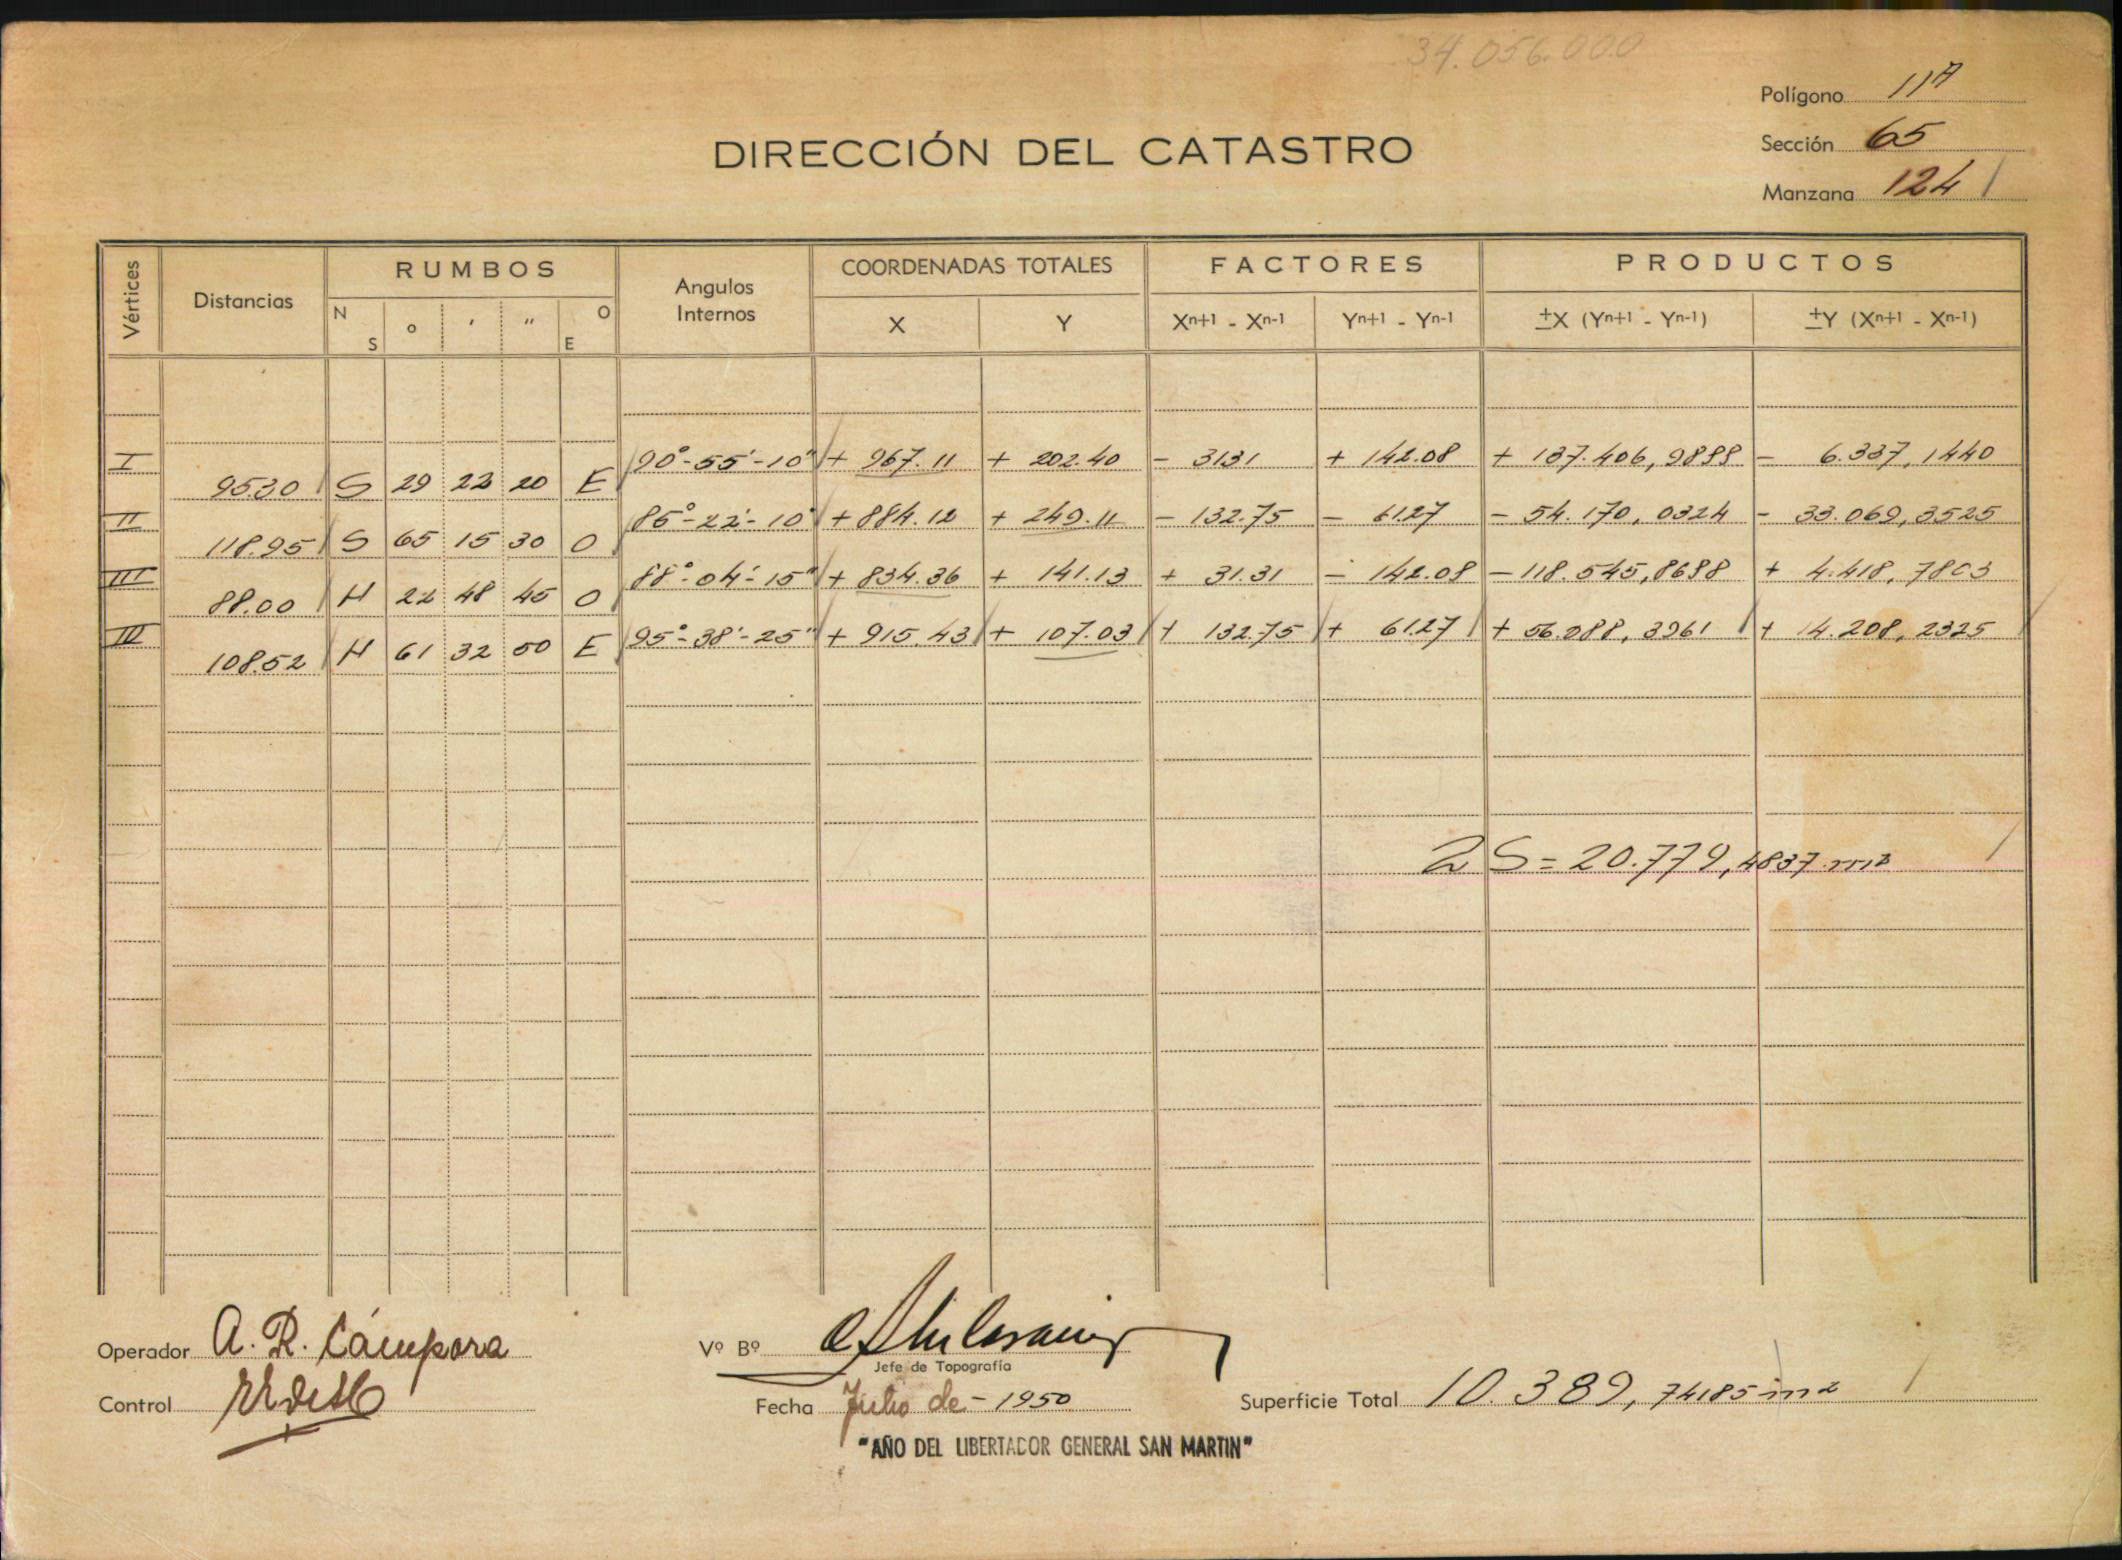 34.056.000
Polígono 11A
DIRECCIÓN DEL CATASTRO
Sección 65
Manzana 124
Vértices Distancias RUMBOS Angulos Internos COORDENADAS TOTALES FACTORES PRODUCTOS
N S ° ' " O E X Y Xn+1 - Xn-1 Yn+1 - Yn-1 ±X (Yn+1 - Yn-1) ±Y (Xn+1 - Xn-1)
I 90°-55'-10" + 967.11 + 202.40 - 31.31 + 142.08 + 137.406,9888 - 6.337,1440
95.30 S 29 22 20 E
II 85°-22'-10" + 884.12 + 249.11 - 132.75 - 61.27 - 54.170,0324 - 33.069,3525
118.95 S 65 15 30 O
III 88°-04'-15" + 834.36 + 141.13 + 31.31 - 142.08 - 118.545,8688 + 4.418,7803
88.00 N 22 48 45 O
IV 95°-38'-25" + 915.43 + 107.03 + 132.75 + 61.27 + 56.088,3961 + 14.208,2325
108.52 N 61 32 50 E
2 S = 20.779,4837 m2
Operador A. R. Cámpora
Vº Bº
Jefe de Topografía
Control
Fecha Julio de - 1950
Superficie Total 10.389,74185 m2
"AÑO DEL LIBERTADOR GENERAL SAN MARTIN"